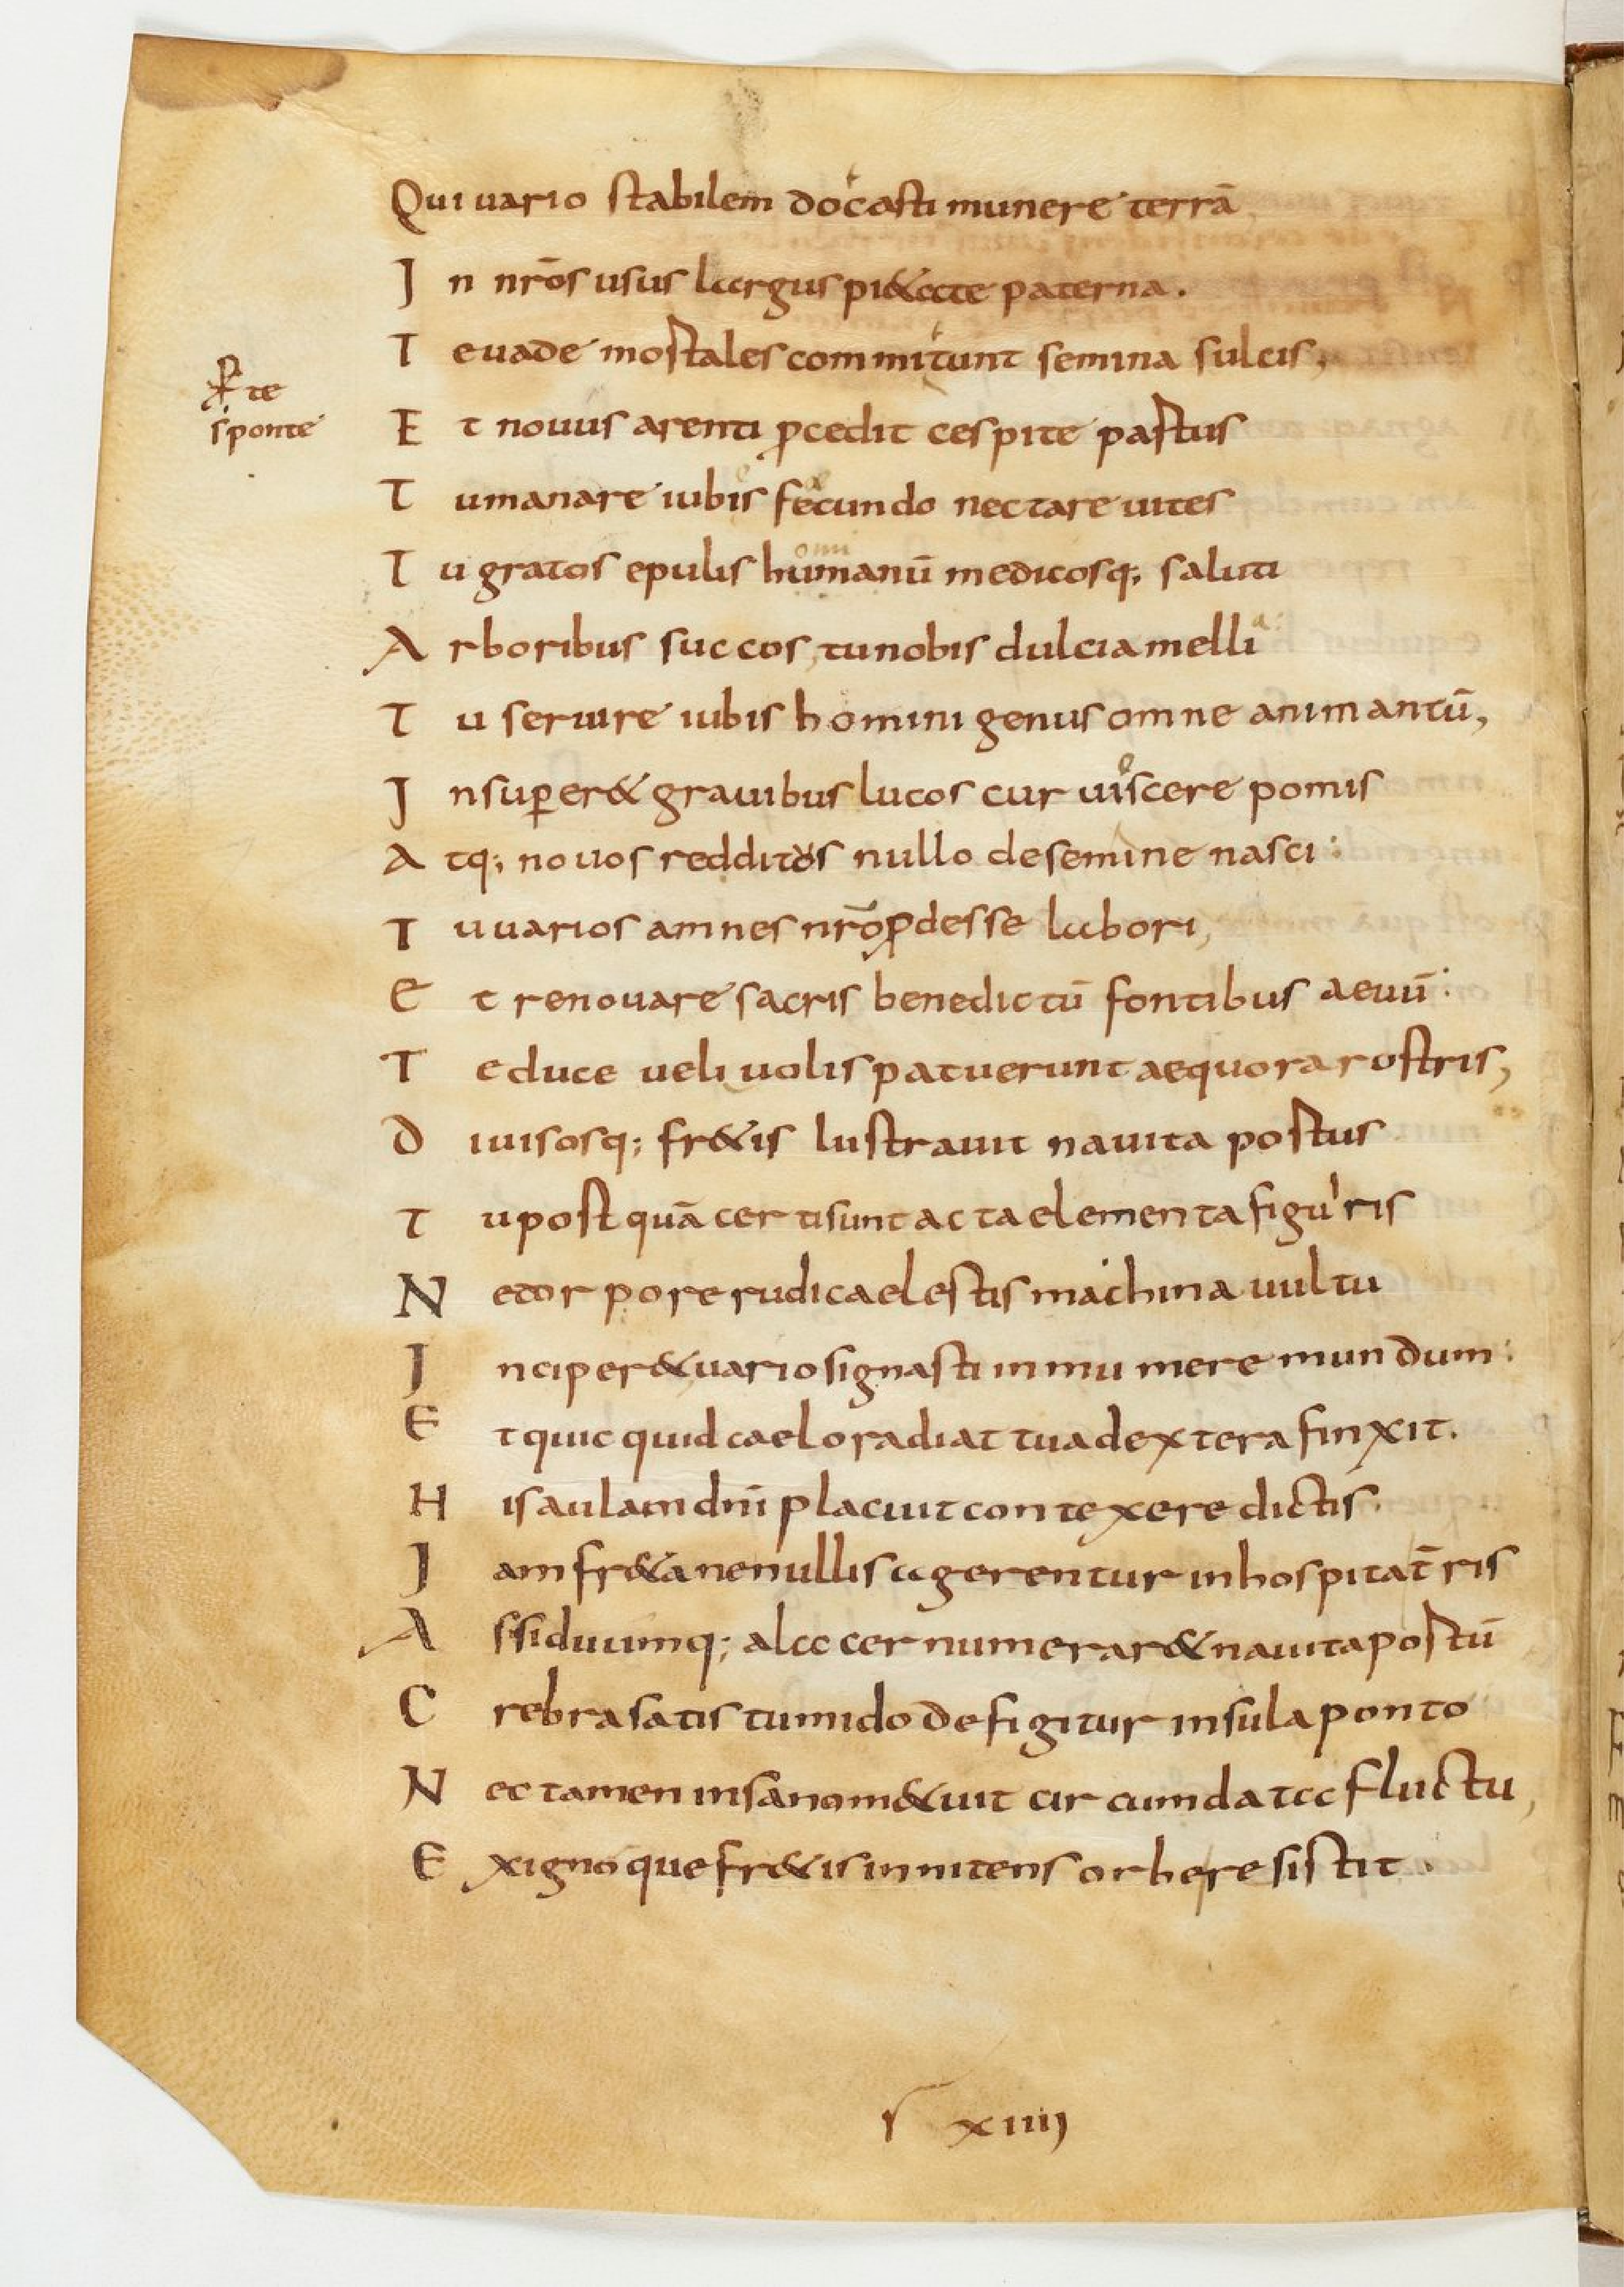 Qui uario stabilem docasti munere terrā,
In nr̄os usus largus pi&ate paterna.
Te uade mostales commitunt semina sulcis,
te
sponte
Et nouus arenti ꝓcedit cespite pastus
Tu manare iubis fecundo nectare uites
Tu gratos epulis humanū medicosq; saluti
Arboribus succos, tu nobis dulcia melli
Tu seruire iubis homini genus omne animantū,
Insuper & grauibus lucos curuiscere pomis
Atq; nouos redditos nullo de semine nasci:
Tu uarios amnes nr̄o ꝓdesse labori,
Et renouare sacris benedictū fontibus aeuū:
Te duce ueliuolis patuerunt aequora rostris,
Diuisosq; fr&is lustrauit nauita postus
Tu postquā certi sunt acta elementa figuris
Ne torpore rudi caelestis machina uultu
Inciper& uario signasti inmumere mundum:
Et quicquid caelo radiat tua dextera finxit.
His aulam dn̄i placuit contexere dictis.
Iam fr&a ne nullis agerentur inhospita t̄ris
Assiduumq; alacer numerar& nauita postū
Crebra satis tumido defigitur insula ponto
Nec tamen insanom&uit circumdata fluctu,
Exignoque fr&is innitens orbe resistit.
xiiij